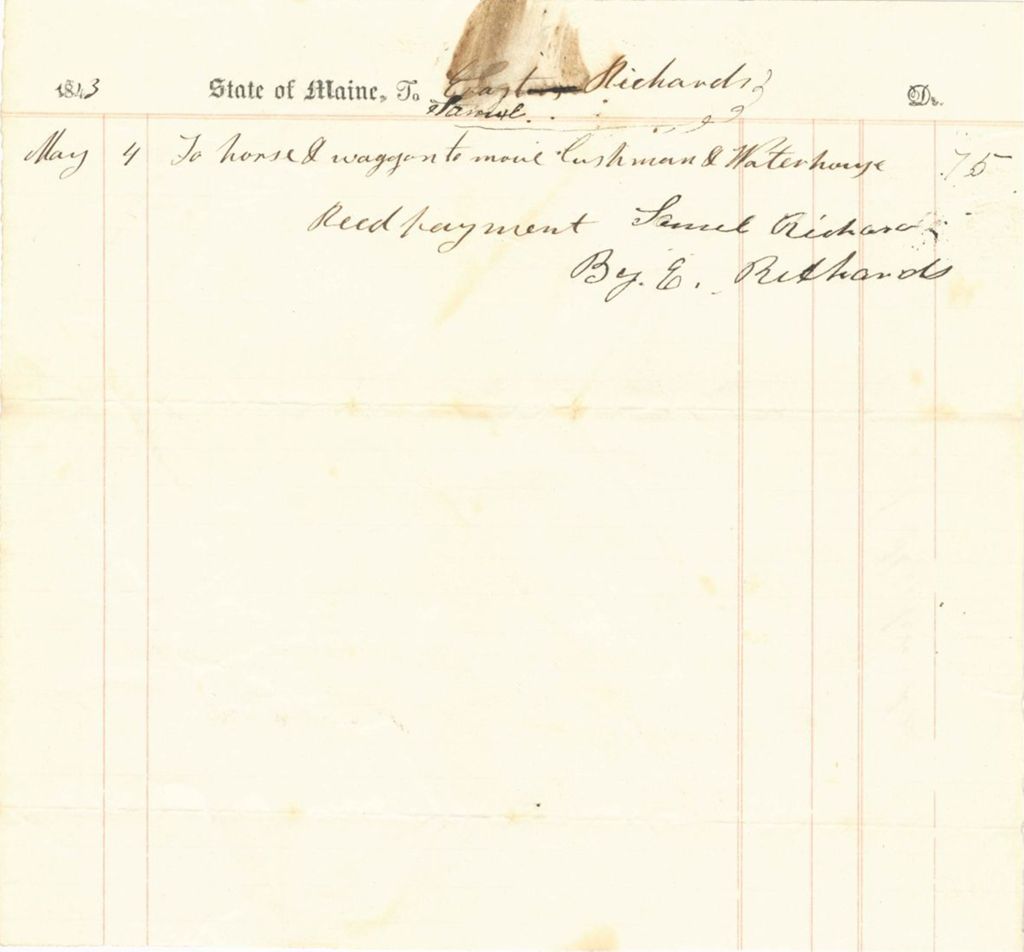 1843 State of Maine, To Richards Dr.
Samuel
May 4 To horse & waggon to move Cushman & Waterhouse .75
Recd payment Samuel Richards
By. E. Richards